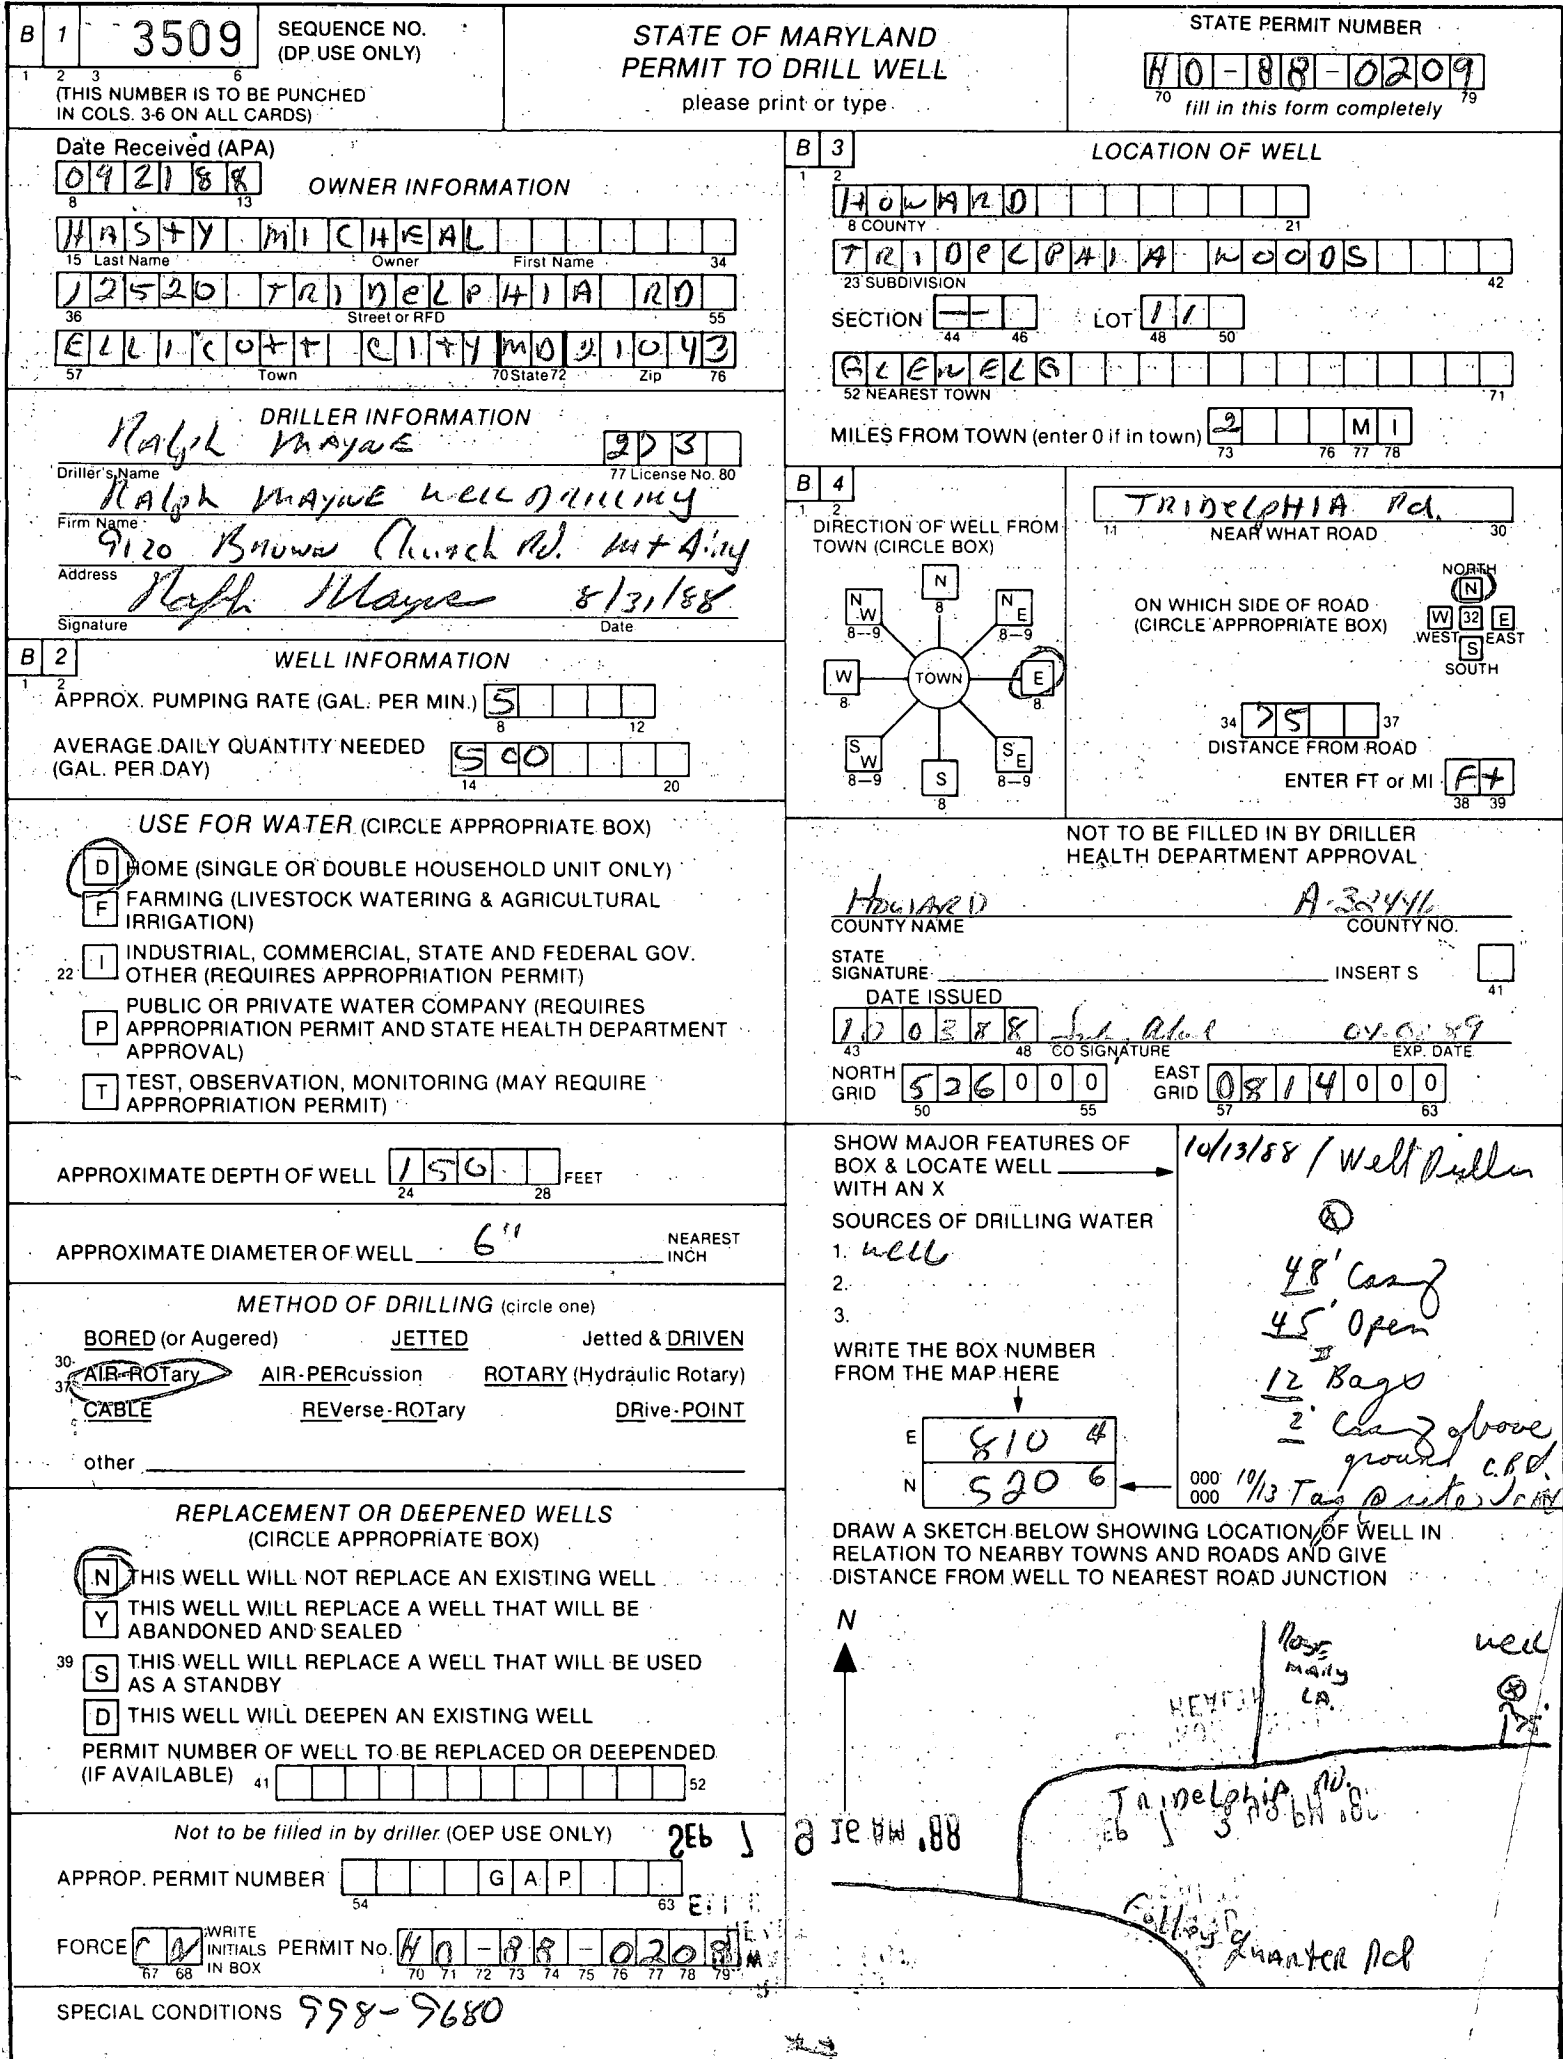 B 1 3509 SEQUENCE NO. (DP USE ONLY)
1 2 3 6
(THIS NUMBER IS TO BE PUNCHED
IN COLS. 3-6 ON ALL CARDS)
STATE OF MARYLAND
PERMIT TO DRILL WELL
please print or type
STATE PERMIT NUMBER
HO-88-0209
70 79
fill in this form completely
Date Received (APA)
092188
8 13
OWNER INFORMATION
HASTY MICHEAL
15 Last Name Owner First Name 34
12520 TRIDELPHIA RD
36 Street or RFD 55
ELLICOTT CITY MD 21043
57 Town 70 State 72 Zip 76
DRILLER INFORMATION
Ralph MAYNE 273
Driller's Name 77 License No. 80
Ralph MAYNE Well Drilling
Firm Name
9120 Brown Church Rd. Mt Airy
Address
Ralph Mayne 8/31/88
Signature Date
B 2 WELL INFORMATION
1 2
APPROX. PUMPING RATE (GAL. PER MIN.) 5
8 12
AVERAGE DAILY QUANTITY NEEDED
(GAL. PER DAY) 500
14 20
USE FOR WATER (CIRCLE APPROPRIATE BOX)
D HOME (SINGLE OR DOUBLE HOUSEHOLD UNIT ONLY)
F FARMING (LIVESTOCK WATERING & AGRICULTURAL
IRRIGATION)
22 I INDUSTRIAL, COMMERCIAL, STATE AND FEDERAL GOV.
OTHER (REQUIRES APPROPRIATION PERMIT)
P PUBLIC OR PRIVATE WATER COMPANY (REQUIRES
APPROPRIATION PERMIT AND STATE HEALTH DEPARTMENT
APPROVAL)
T TEST, OBSERVATION, MONITORING (MAY REQUIRE
APPROPRIATION PERMIT)
APPROXIMATE DEPTH OF WELL 150 FEET
24 28
APPROXIMATE DIAMETER OF WELL 6" NEAREST
INCH
METHOD OF DRILLING (circle one)
BORED (or Augered) JETTED Jetted & DRIVEN
30-37 AIR-ROTary AIR-PERcussion ROTARY (Hydraulic Rotary)
CABLE REVerse-ROTary DRive-POINT
other
REPLACEMENT OR DEEPENED WELLS
(CIRCLE APPROPRIATE BOX)
N THIS WELL WILL NOT REPLACE AN EXISTING WELL
Y THIS WELL WILL REPLACE A WELL THAT WILL BE
ABANDONED AND SEALED
39 S THIS WELL WILL REPLACE A WELL THAT WILL BE USED
AS A STANDBY
D THIS WELL WILL DEEPEN AN EXISTING WELL
PERMIT NUMBER OF WELL TO BE REPLACED OR DEEPENDED
(IF AVAILABLE) 41 52
Not to be filled in by driller (OEP USE ONLY)
APPROP. PERMIT NUMBER GAP
54 63
FORCE WRITE INITIALS IN BOX PERMIT No. HO-88-0209
67 68 70 71 72 73 74 75 76 77 78 79
SPECIAL CONDITIONS 998-9680
B 3 LOCATION OF WELL
1 2
HOWARD
8 COUNTY 21
TRIDELPHIA WOODS
23 SUBDIVISION 42
SECTION -- LOT 11
44 46 48 50
GLENELG
52 NEAREST TOWN 71
MILES FROM TOWN (enter 0 if in town) 2 MI
73 76 77 78
B 4
1 2
DIRECTION OF WELL FROM
TOWN (CIRCLE BOX)
N
8
NW NE
8-9 8-9
W TOWN E
8 8
SW SE
8-9 8-9
S
8
TRIDELPHIA Rd.
11 NEAR WHAT ROAD 30
ON WHICH SIDE OF ROAD
(CIRCLE APPROPRIATE BOX)
NORTH
N
W 32 E
WEST EAST
S
SOUTH
34 75 37
DISTANCE FROM ROAD
ENTER FT or MI Ft
38 39
NOT TO BE FILLED IN BY DRILLER
HEALTH DEPARTMENT APPROVAL
HOWARD A-32446
COUNTY NAME COUNTY NO.
STATE
SIGNATURE INSERT S
41
DATE ISSUED
100388
43 48 CO SIGNATURE EXP. DATE
NORTH GRID 526000 EAST GRID 0814000
50 55 57 63
SHOW MAJOR FEATURES OF
BOX & LOCATE WELL
WITH AN X
SOURCES OF DRILLING WATER
1. well
2.
3.
WRITE THE BOX NUMBER
FROM THE MAP HERE
E 810 4
N 520 6
000
000
10/13/88
48' Casing
45' Open
12 Bags
2' Casing above
ground C.B.D.
10/13 Tag @ site
DRAW A SKETCH BELOW SHOWING LOCATION OF WELL IN
RELATION TO NEARBY TOWNS AND ROADS AND GIVE
DISTANCE FROM WELL TO NEAREST ROAD JUNCTION
N
Rose
Mary
LA.
well
75'
Tridelphia Rd.
Folleys
Quarter Rd